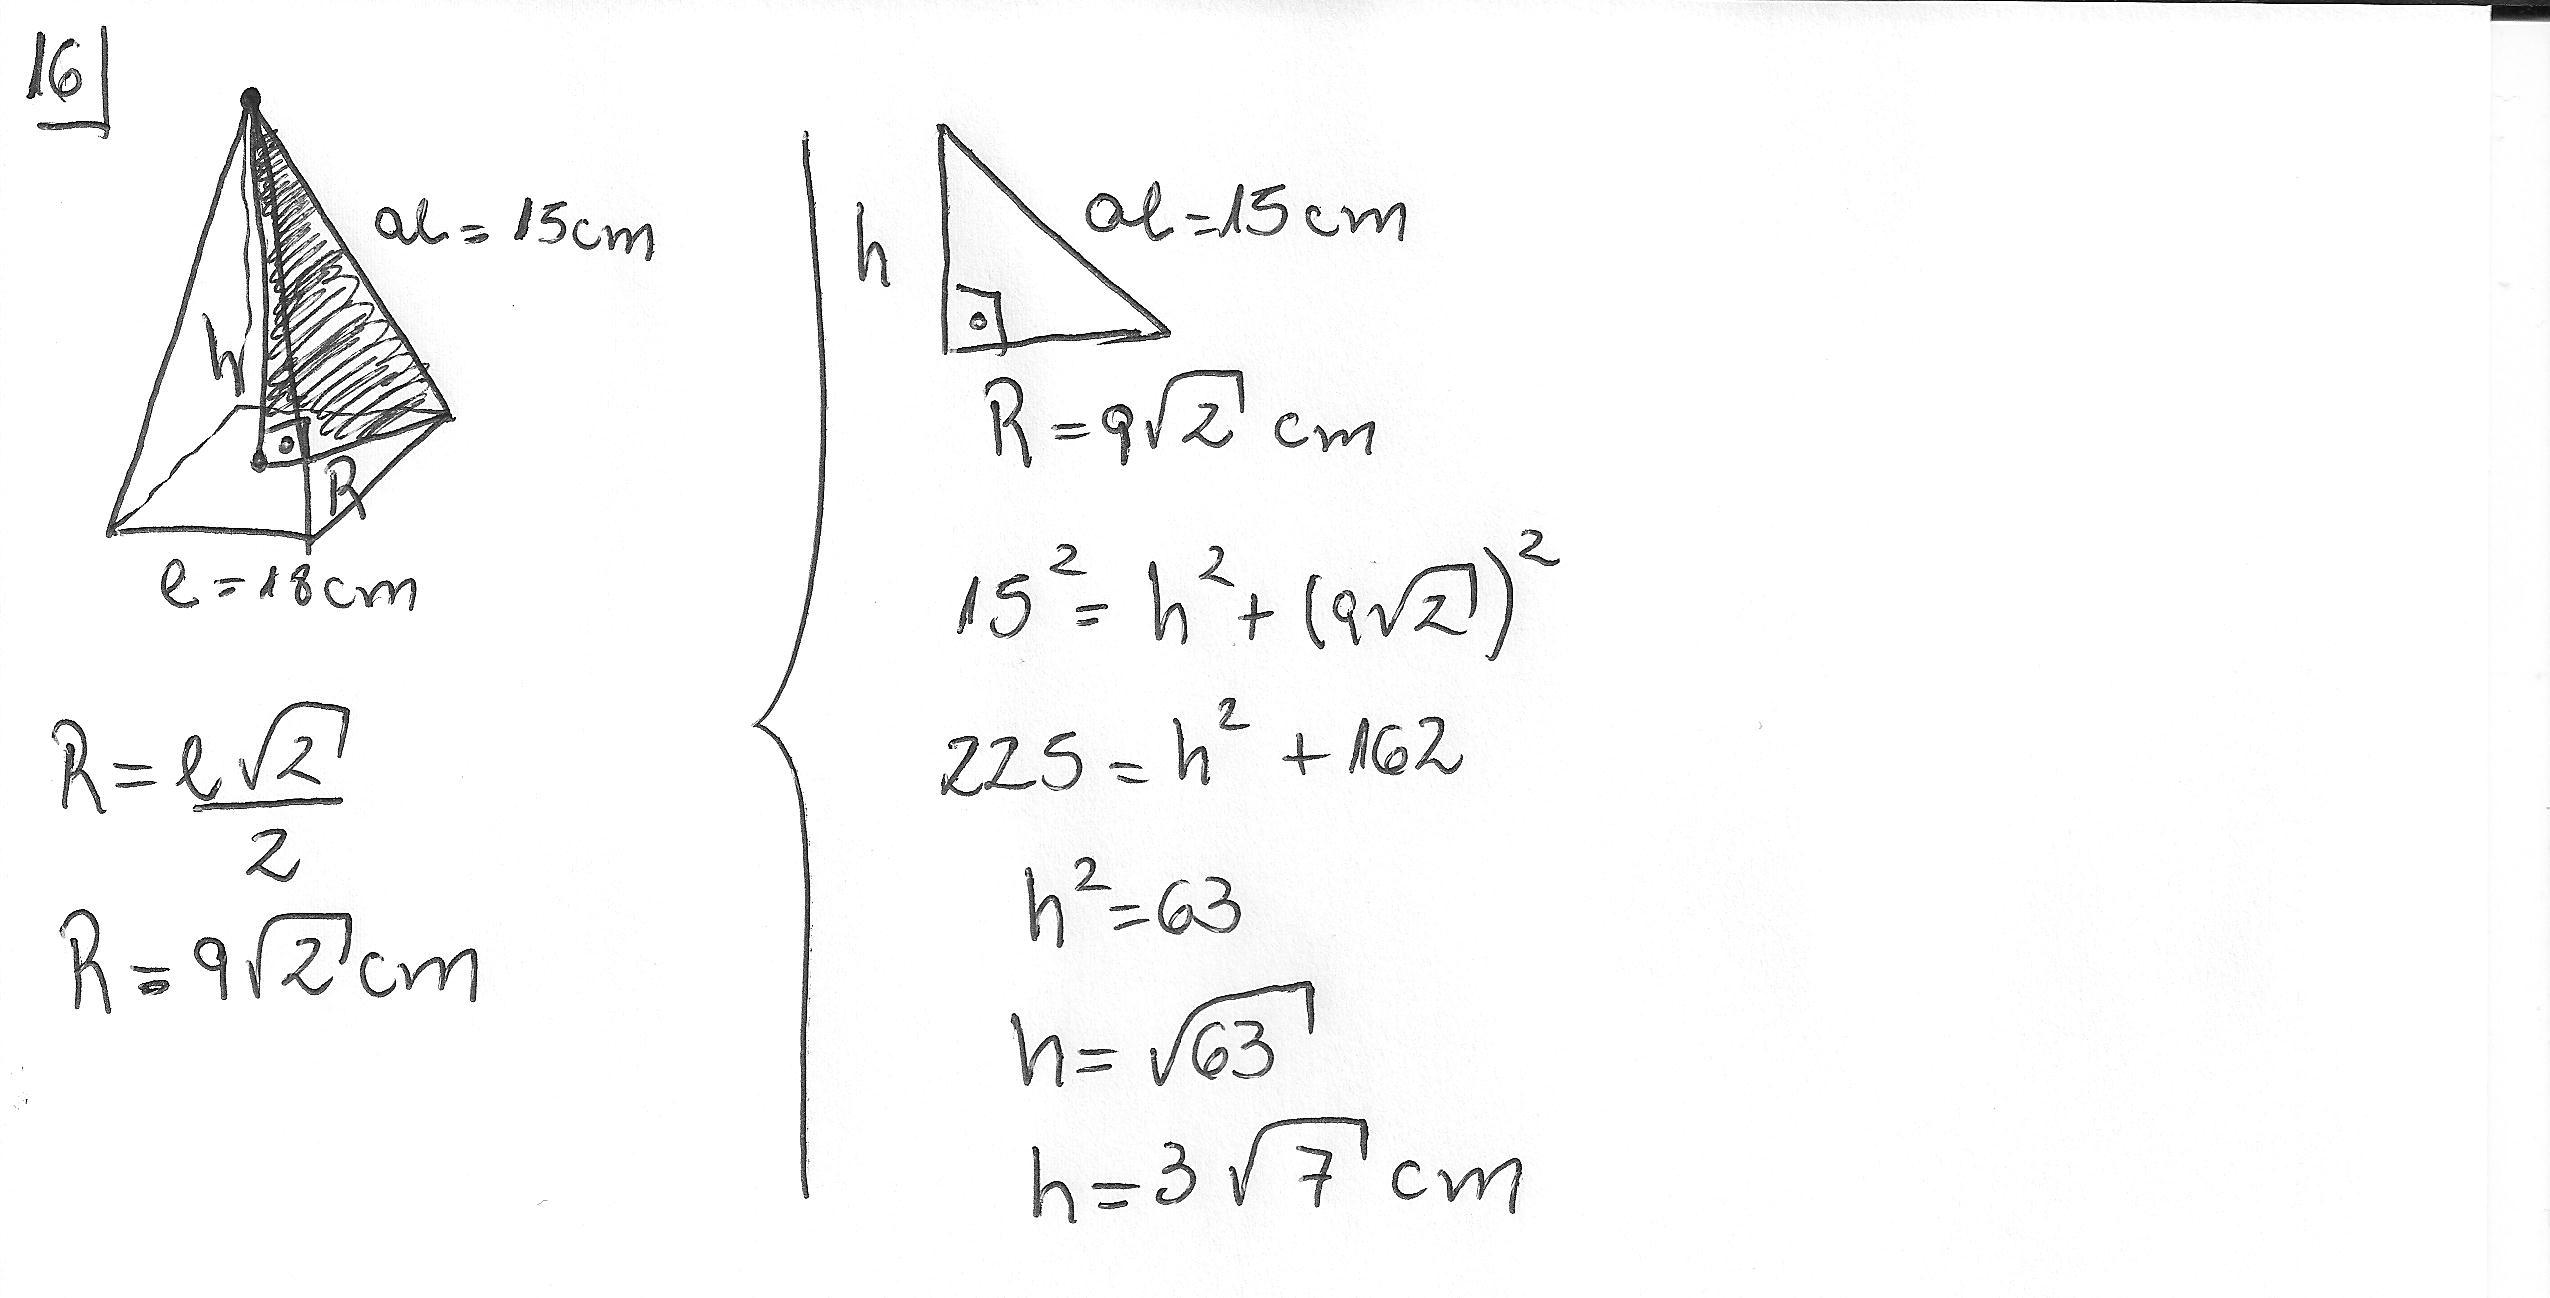 16
al = 15cm
h
R
l = 18cm
R = l√2
2
R = 9√2 cm
al = 15cm
h
R = 9√2 cm
15² = h² + (9√2)²
225 = h² + 162
h² = 63
h = √63
h = 3√7 cm